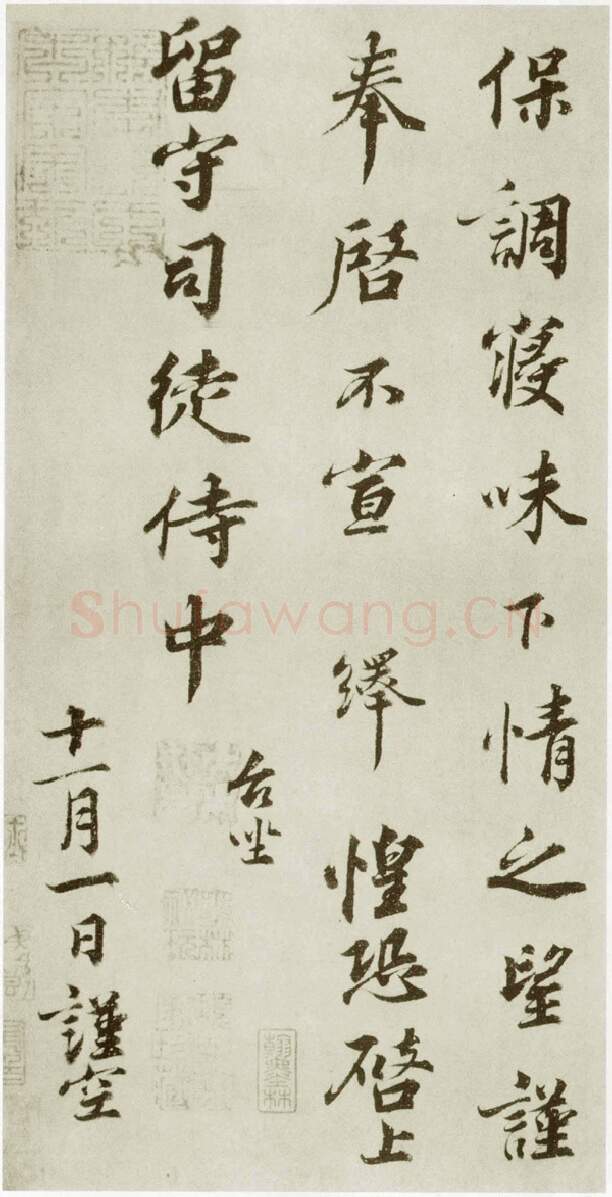 保調寢味下情之望謹
奉啓不宣 繹惶恐啓上
留守司徒侍中
台坐
十一月一日謹空
Shufawang.CN